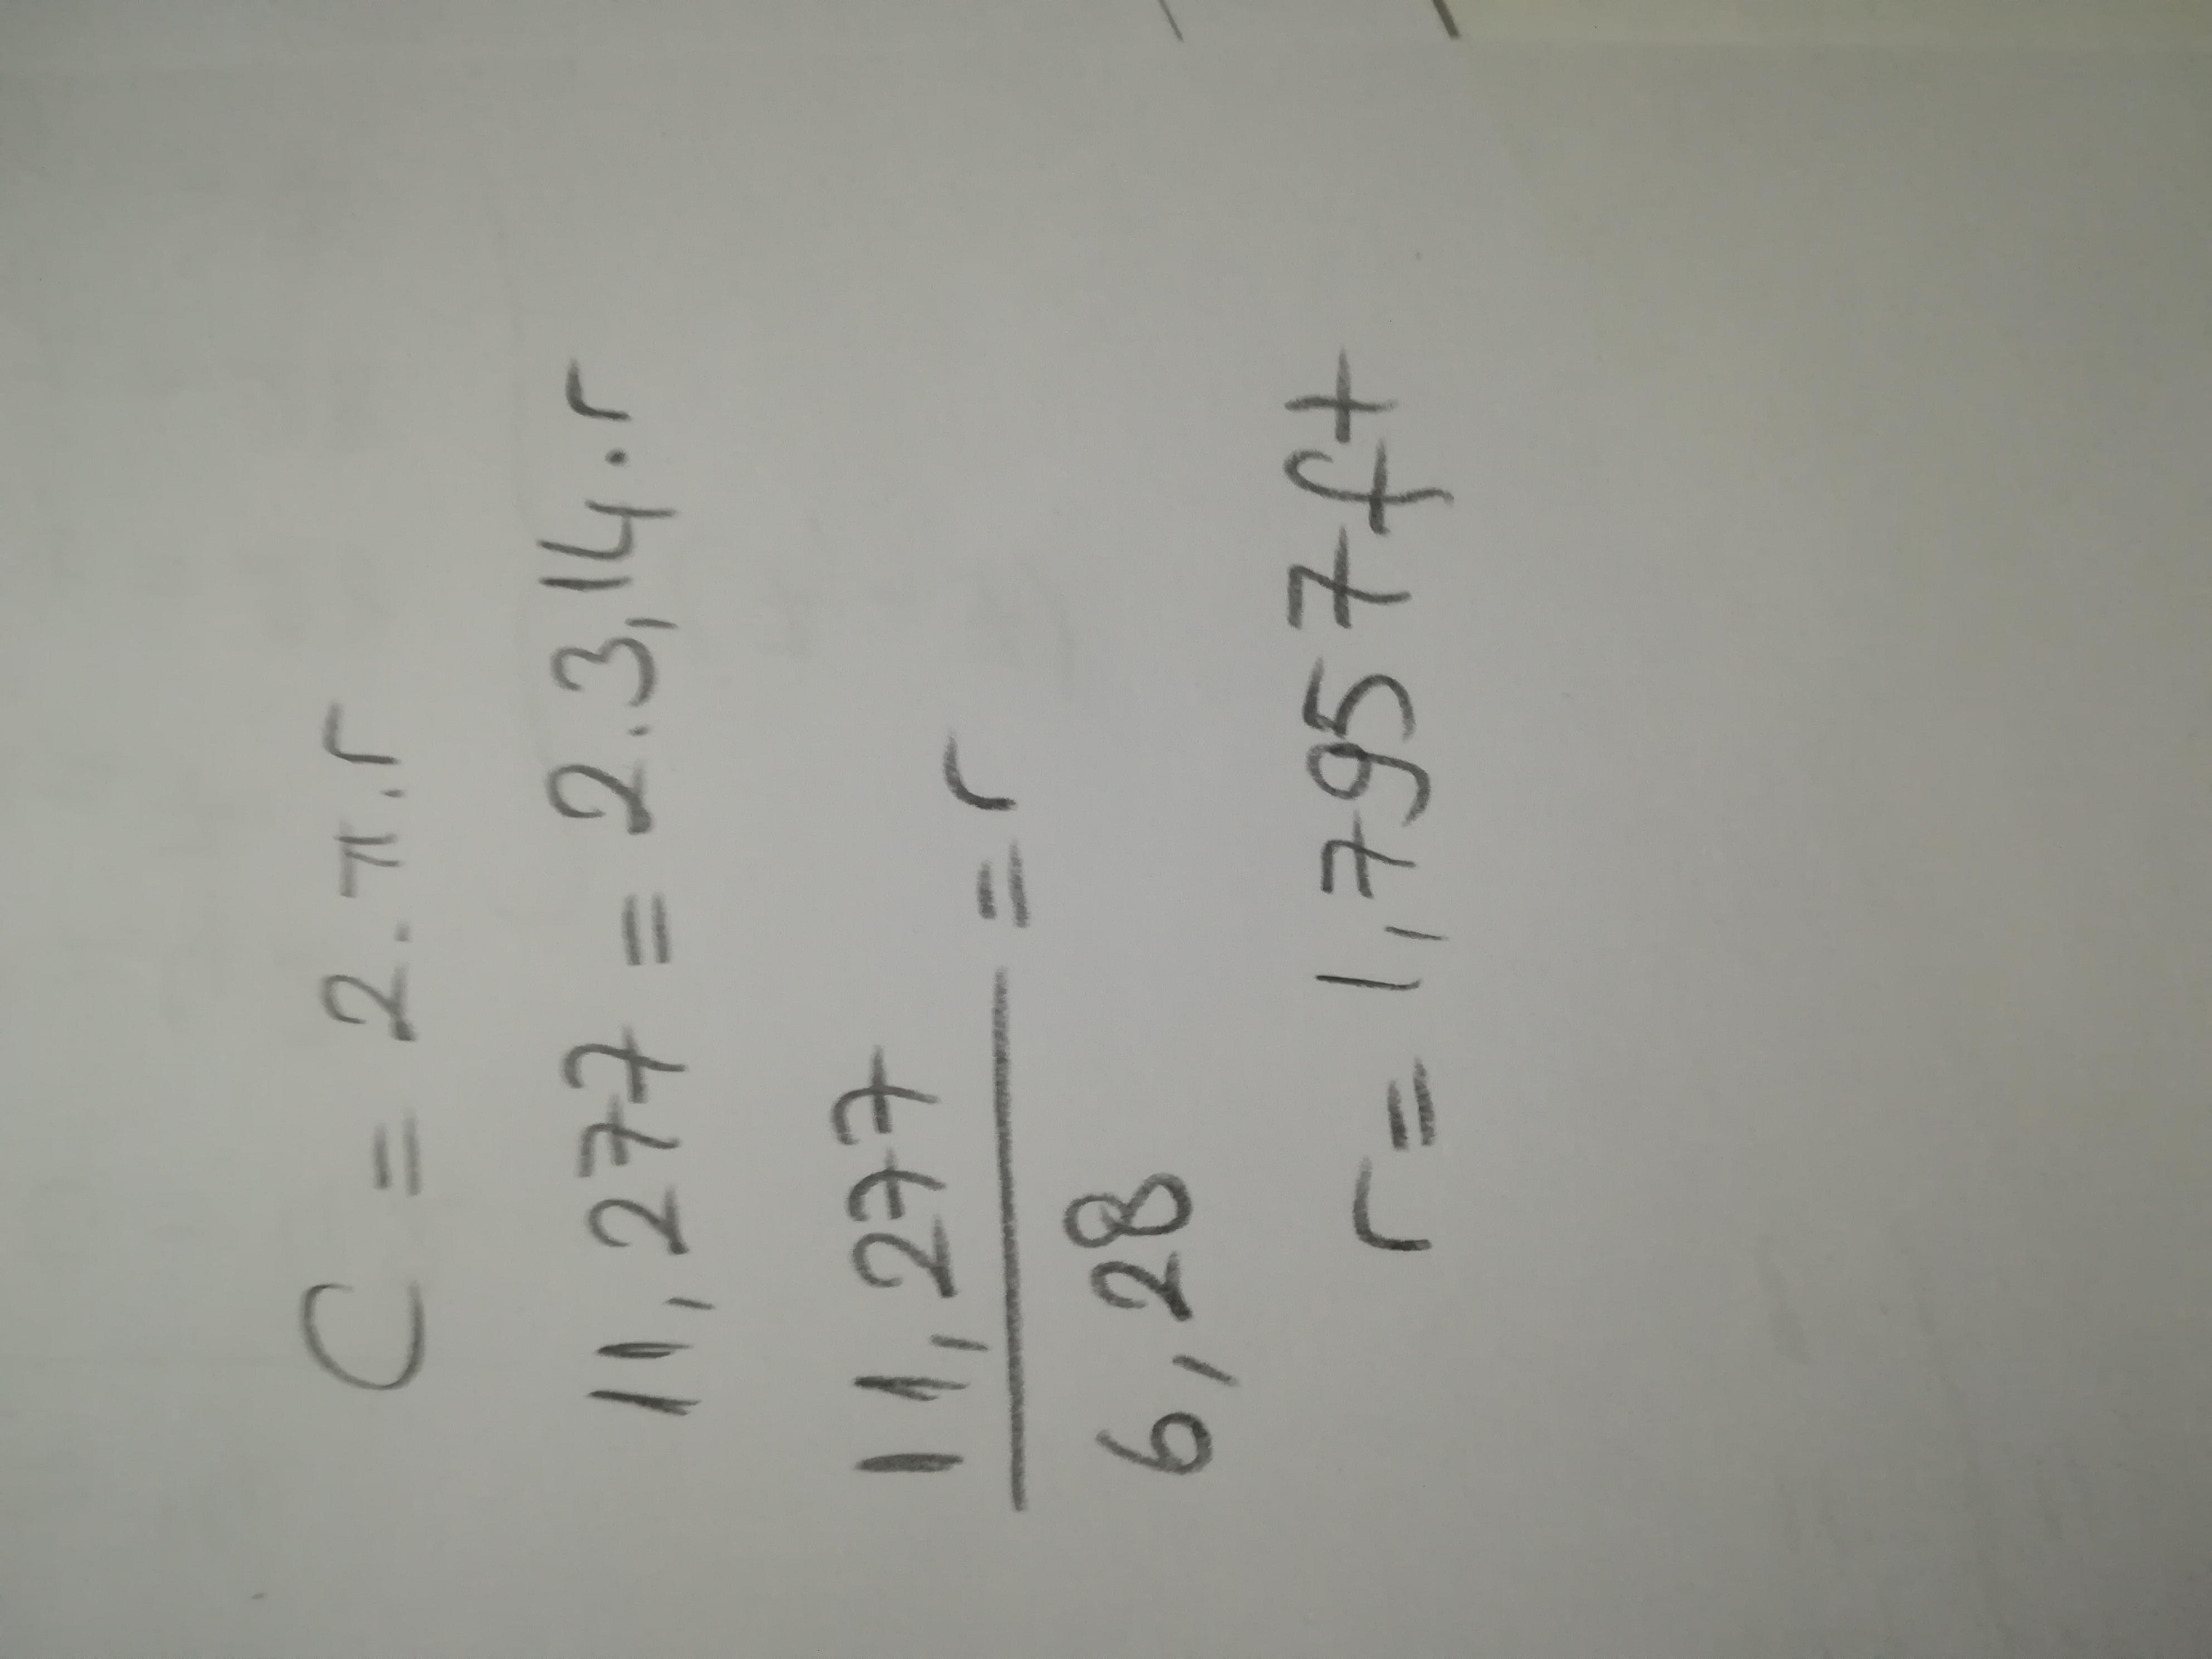 C = 2.π.r
11,277 = 2.3,14.r
11,277
6,28
= r
r = 1,7957ft